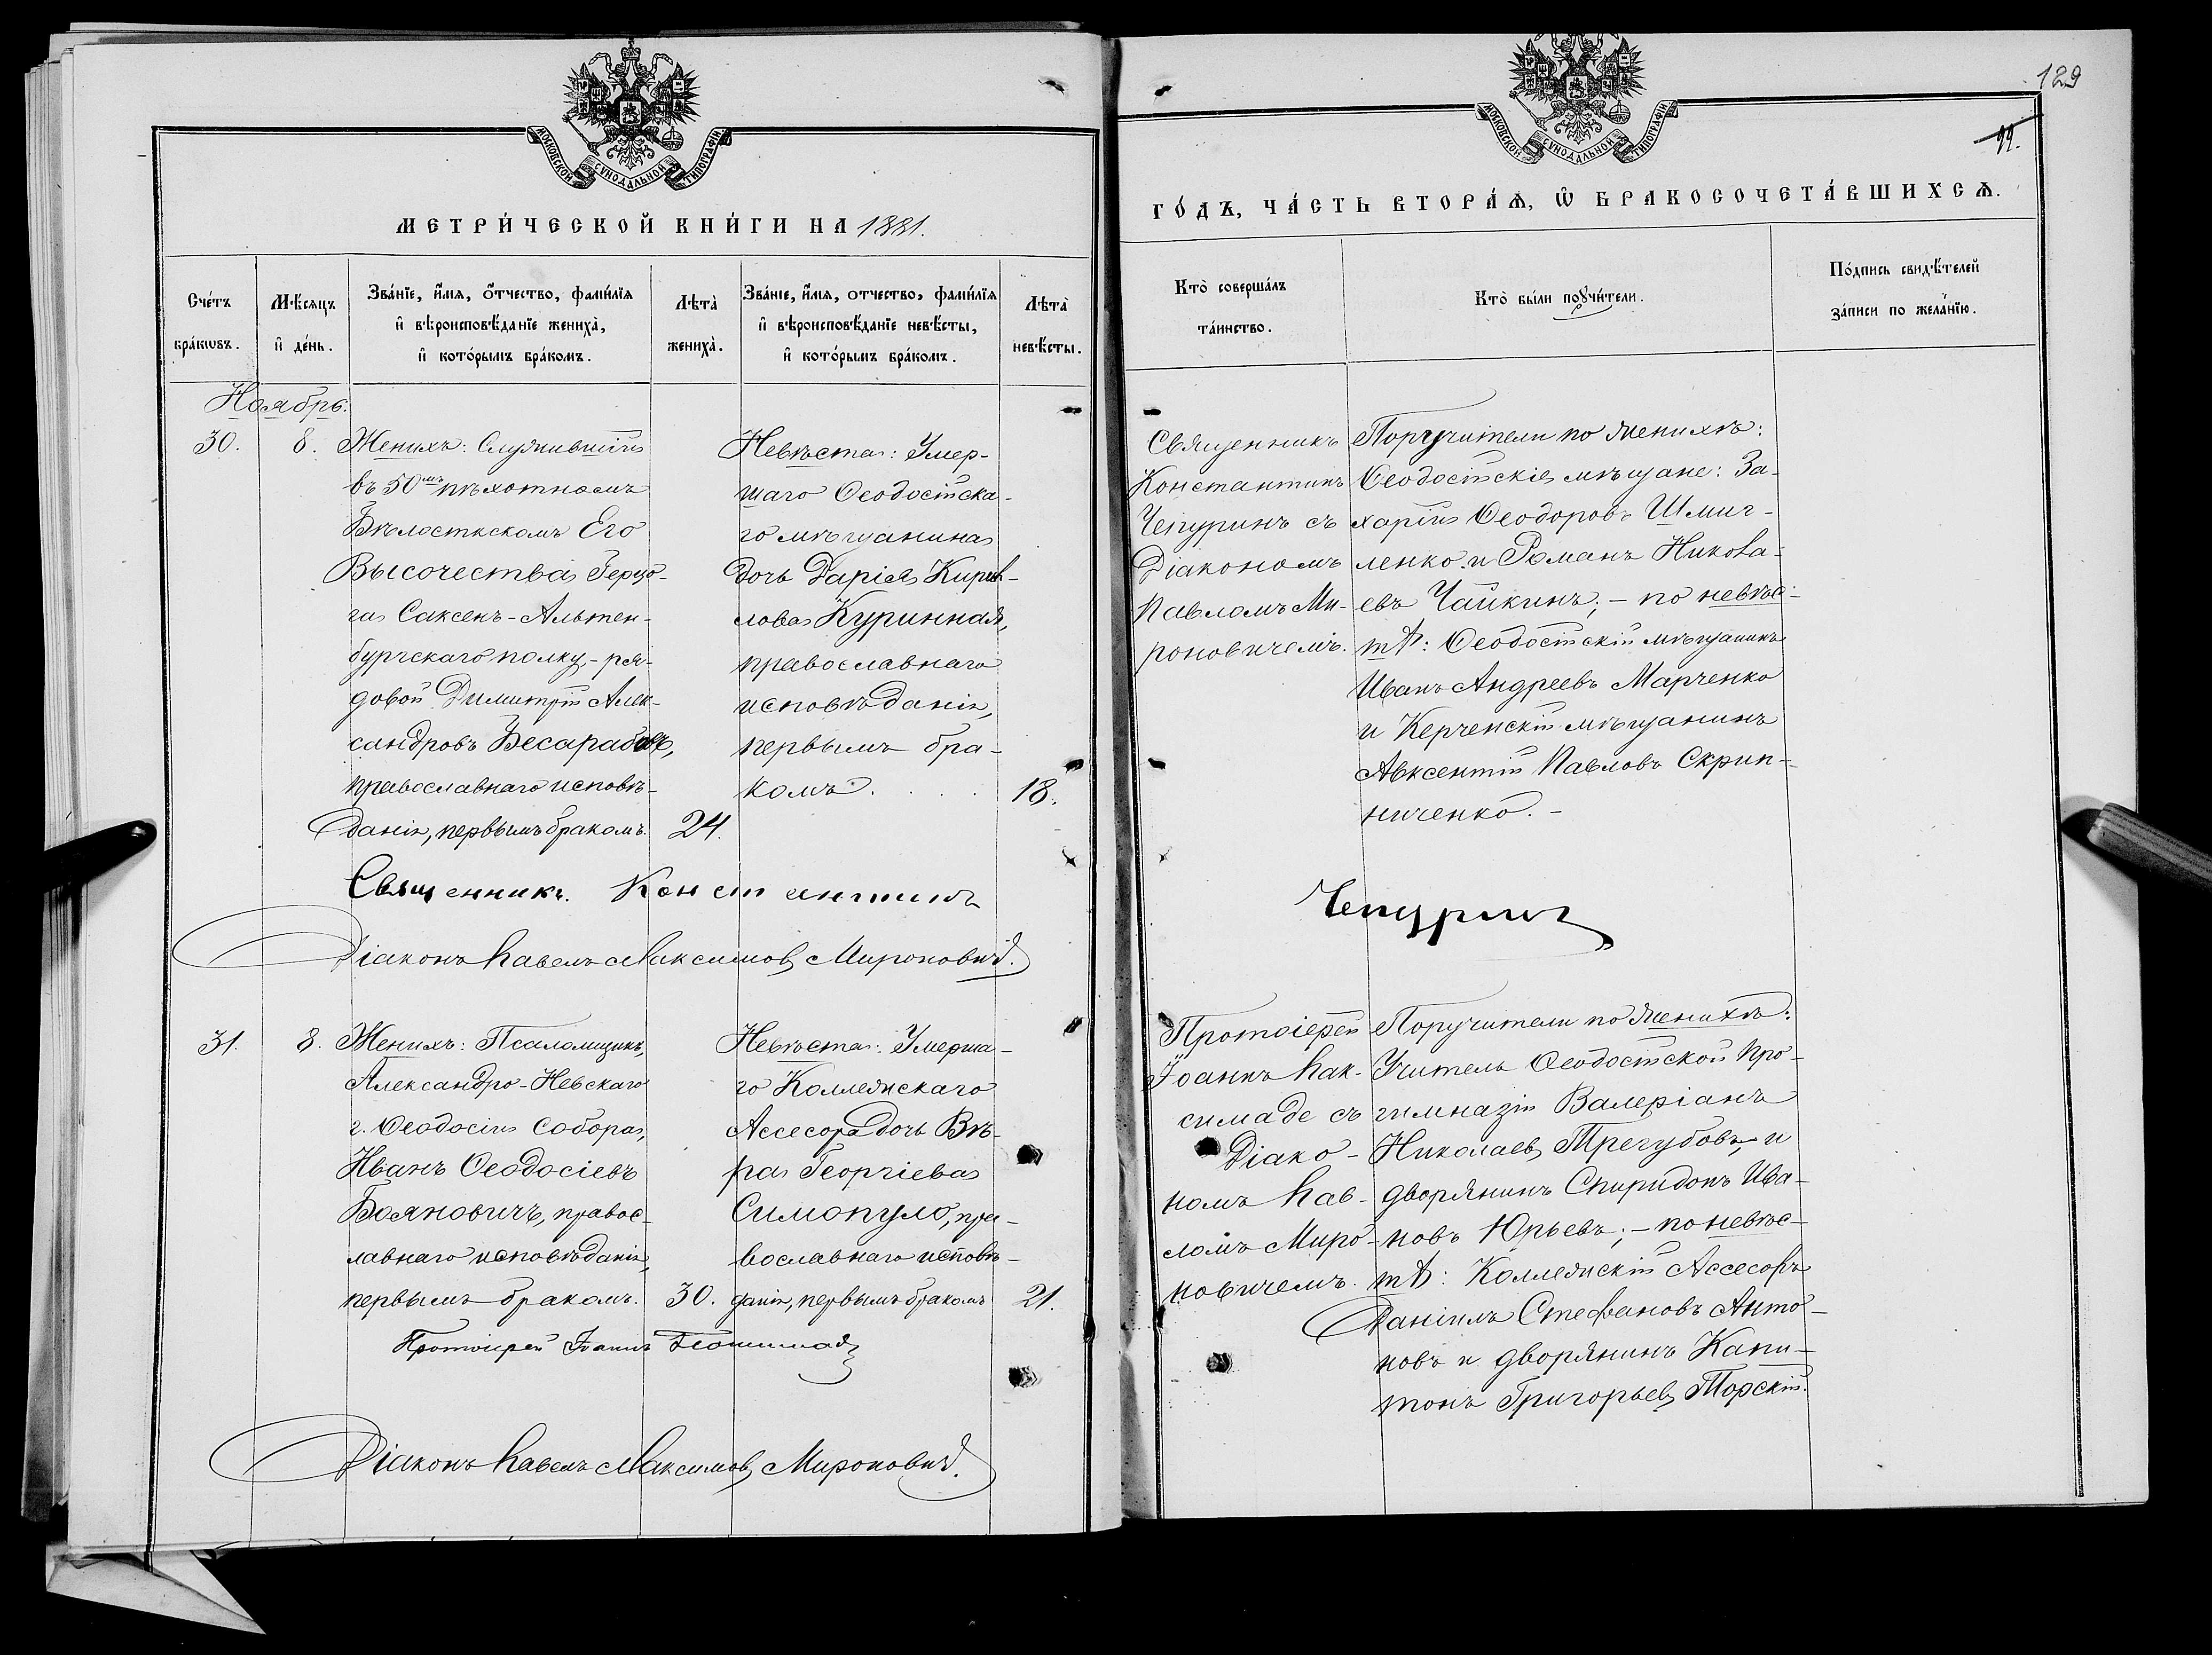 МОСКОВСКОЙ СѴНОДАЛЬНОЙ ТИПОГРАФІИ
МЕТРИ́ЧЕСКОЙ КНИ́ГИ НА 1881.
Сче́тъ бра́кѡвъ.
Мѣ́сяцъ и҆ де́нь.
Зва́нїе, и҆́мя, ѻ҆́тчество, фами́лїя
и҆ вѣроисповѣ́данїе жениха̀,
и҆ кото́рымъ бра́комъ.
Лѣта̀ жениха̀.
Зва́нїе, и҆́мя, отчество, фами́лїя
и҆ вѣроисповѣ́данїе невѣ́сты,
и҆ кото́рымъ бра́комъ.
Лѣта̀ невѣ́сты.
Ноябрь.
30.
8.
Женихъ: Служившій
въ 50мъ пѣхотномъ
Бѣлостокскомъ Его
Высочества Герцо-
га Саксенъ-Альтен-
бургскаго полку,- ря-
довой Димитрій Алек-
сандровъ Бесарабовъ,
православнаго исповѣ-
данія, первымъ бракомъ.
24.
Невѣста: Умер-
шаго Ѳеодосійска-
го мѣщанина
дочь Дарія Кирил-
лова Куринная,
православнаго
исповѣданія,
первымъ бра-
комъ. . . .
18.
Священникъ. Константинъ
Діаконъ Павелъ Максимовъ Мироновичъ.
31.
8.
Женихъ: Псаломщикъ,
Александро-Невскаго
г. Ѳеодосіи Собора,
Иванъ Ѳеодосіевъ
Бояновичъ, правос-
лавнаго исповѣданія,
первымъ бракомъ.
30.
Невѣста: Умерша-
го Коллежскаго
Ассесора дочь Вѣ-
ра Георгіева
Симопуло, пра-
вославнаго исповѣ-
данія, первымъ бракомъ
21.
Протоіерей Іоаннъ
Діаконъ Павелъ Максимовъ Мироновичъ.
129
99.
МОСКОВСКОЙ СѴНОДАЛЬНОЙ ТИПОГРАФІИ
ГО́ДЪ, ЧА́СТЬ ВТОРА́Ѧ, Ѡ҆ БРАКОСОЧЕТА́ВШИХСѦ.
Кто̀ соверша́лъ
та́инство.
Кто̀ бы́ли порꙋчи́тели.
По́дпись свидѣ́телей
за́писи по жела́нїю.
Священникъ
Константинъ
Чепуринъ съ
Діакономъ
Павломъ Ми-
роновичемъ.
Поручители по женихѣ:
Ѳеодосійскіе мѣщане: За-
харій Ѳеодоровъ Шмиг-
ленко и Романъ Никола-
евъ Чайкинъ; - по невѣс-
тѣ: Ѳеодосійскій мѣщанинъ
Иванъ Андреевъ Марченко
и Керченскій мѣщанинъ
Авксентій Павловъ Скрип-
ниченко. -
Чепуринъ
Протоіерей
Іоаннъ Пак-
симаде съ
Діако-
номъ Пав-
ломъ Миро-
новичемъ.
Поручители по женихѣ:
Учитель Ѳеодосійской Про-
гимназіи Валеріанъ
Николаевъ Трегубовъ, и
дворянинъ Спиридонъ Ива-
новъ Юрьевъ; - по невѣс-
тѣ: Коллежскій Ассесоръ
Даніилъ Стефановъ Анто-
новъ и дворянинъ Капи-
тонъ Григорьевъ Торскій.